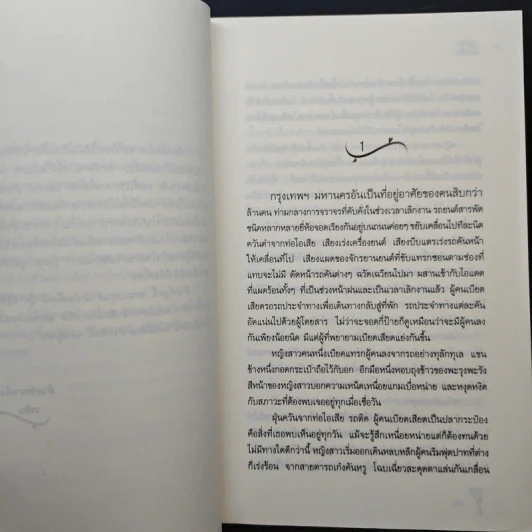 1
กรุงเทพฯ มหานครอันเป็นที่อยู่อาศัยของคนสิบกว่า
ล้านคน ท่ามกลางการจราจรที่คับคั่งในช่วงเวลาเลิกงาน รถยนต์สารพัด
ชนิดหลากหลายยี่ห้อจอดเรียงกันอยู่บนถนนค่อยๆ ขยับเคลื่อนไปทีละนิด
ควันดำจากท่อไอเสีย เสียงเร่งเครื่องยนต์ เสียงบีบแตรเร่งรถคันหน้า
ให้เคลื่อนที่ไป เสียงแผดของจักรยานยนต์ที่ขับแทรกซอนตามช่องที่
แทบจะไม่มี ตัดหน้ารถคันต่างๆ ฉวัดเฉวียนไปมา ผสานเข้ากับไอแดด
ที่แผดร้อนทั้งๆ ที่เป็นช่วงหน้าฝนและเป็นเวลาเลิกงานแล้ว ผู้คนเบียด
เสียดรอรถประจำทางเพื่อเดินทางกลับสู่ที่พัก รถประจำทางแต่ละคัน
อัดแน่นไปด้วยผู้โดยสาร ไม่ว่าจะจอดกี่ป้ายก็ดูเหมือนว่าจะมีผู้คนลง
กันเพียงน้อยนิด มีแต่ผู้ที่พยายามเบียดเสียดแย่งกันขึ้น
หญิงสาวคนหนึ่งเบียดแทรกผู้คนลงจากรถอย่างทุลักทุเล แขน
ข้างหนึ่งกอดกระเป๋าถือไว้กับอก อีกมือหนึ่งหอบถุงข้าวของพะรุงพะรัง
สีหน้าของหญิงสาวบอกความเหนื่อยแกมเบื่อหน่าย และหงุดหงิด
กับสภาวะที่ต้องพบเจออยู่ทุกเมื่อเชื่อวัน
ฝุ่นควันจากท่อไอเสีย รถติด ผู้คนเบียดเสียดเป็นปลากระป๋อง
คือสิ่งที่เธอพบเห็นอยู่ทุกวัน แม้จะรู้สึกเหนื่อยหน่ายแต่ก็ต้องทนด้วย
ไม่มีทางใดดีกว่านี้ หญิงสาวเริ่มออกเดินหลบหลีกผู้คนริมฟุตปาทที่ต่าง
ก็เร่งร้อน จากสายตารถเก๋งคันหรู โฉบเฉี่ยวสะดุดตาแล่นกันเกลื่อน